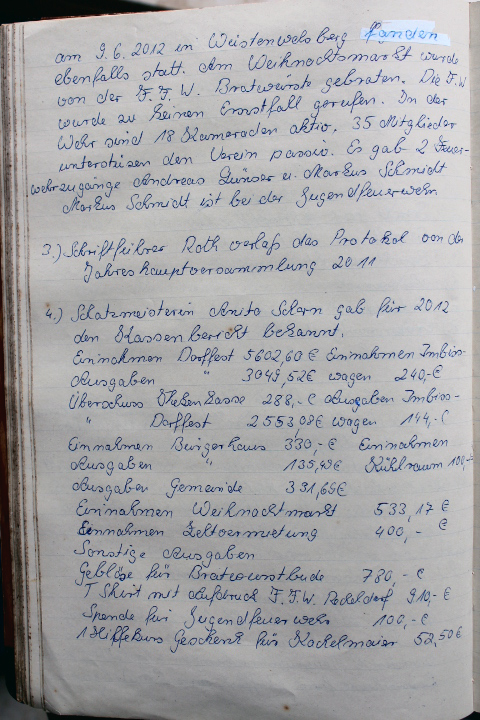 am 9.6.2012 in Wüstenwelsberg fanden
ebenfalls statt. Am Weihnachtsmarkt wurde
von der F.F.W. Bratwürste gebraten. Die F.W
wurde zu keinen Ernstfall gerufen. In der
Wehr sind 18 Kameraden aktiv, 35 Mitglieder
unterstüzen den Verein passiv. Es gab 2 Feuer-
wehrzugänge Andreas u. Markus Schmidt
Markus Schmidt ist bei der Jugendfeuerwehr
3.) Schriftführer Roth verlaß das Protokol von der
Jahreshauptversammlung 2011
4.) Schatzmeisterin Anita Schorn gab für 2012
den Kassenbericht bekannt.
Einnahmen Dorffest 5602,60 € Einnahmen Imbiss-
Ausgaben " 3049,52€ wagen 240,-€
Überschuss 288,-€ Ausgaben Imbiss-
" Dorffest 2553,08€ wagen 144,-€
Einnahmen Bürgerhaus 330,-€ Einnahmen
Ausgaben " 135,49€ Kühlraum 100,-
Ausgaben Gemeinde 331,69€
Einnahmen Weihnachtmarkt 533,17 €
Einnahmen Zeltvermietung 400,- €
Sonstige Ausgaben
Gebläse für Bratwurstbude 780,- €
T Shirt mit Aufdruck F.F.W. 910,- €
Spende für Jugendfeuerwehr 100,- €
Geschenk für Kachelmaier 52,50€